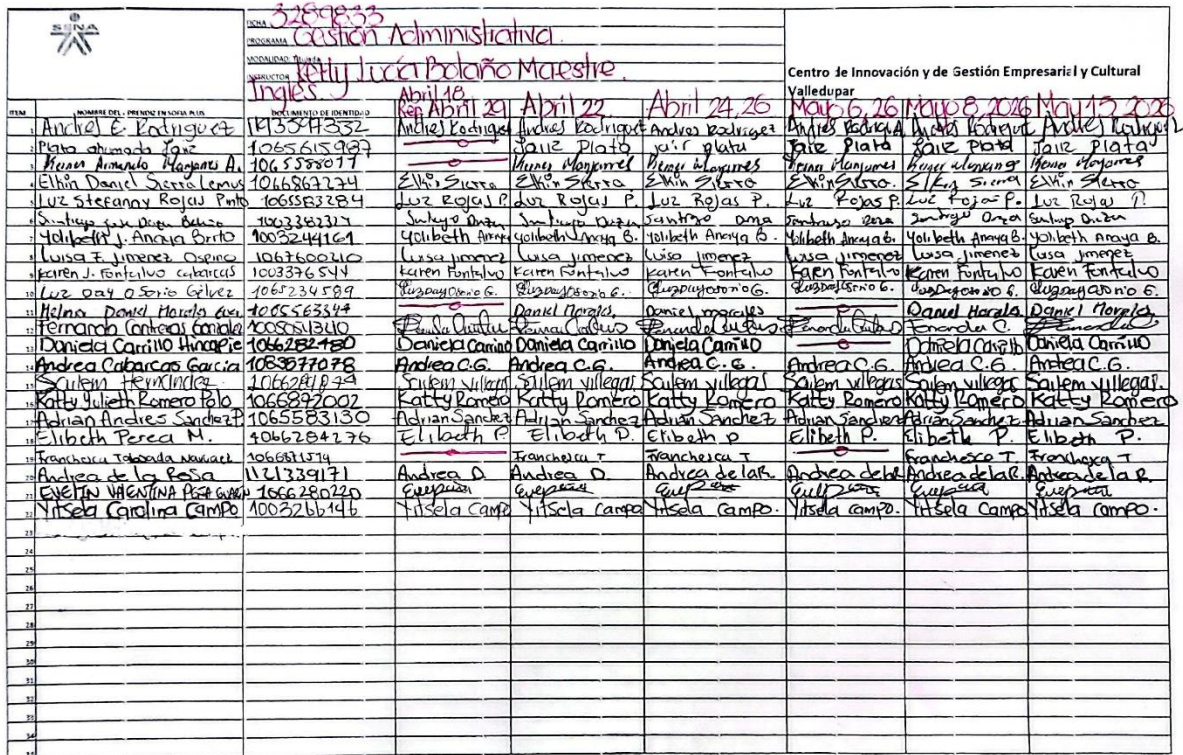 SENA
FICHA 3289833
PROGRAMA Gestión Administrativa.
MODALIDAD
INSTRUCTOR Ketty Lucía Bolaño Maestre.
Inglés
Centro de Innovación y de Gestión Empresarial y Cultural
Valledupar
Abril 18
ITEM NOMBRE DEL APRENDIZ EN SOFIA PLUS DOCUMENTO DE IDENTIDAD Rep Abril 29 Abril 22 Abril 24, 26 Mayo 6, 26 Mayo 8, 2026 May 15, 2026
1 Andres E. Rodriguez Andres Rodriguez Andres Rodriguez Andres Rodriguez Andres Rodrig. A. Andres Rodriguez Andres Rodriguez
2 Plata Ahumada Jair 1065615987 Jair Plata jair plata Jair Plata Jair Plata Jair Plata
3 Armando Manjarres A.
4 Elkin Daniel Sierra Lemus 1066867274 Elkin Sierra Elkin Sierra Elkin Sierra Elkin Sierra. Elkin Sierra Elkin Sierra
5 Luz Stefanny Rojas Pinto 1065583284 Luz Rojas P. Luz Rojas P. Luz Rojas P. Luz Rojas P. Luz Rojas P. Luz Rojas P.
6 1003382327
7 Yolibeth J. Anaya Brito 1003244161 Yolibeth Anaya Yolibeth Anaya B. Yolibeth Anaya B. Yolibeth Anaya B. Yolibeth Anaya B. Yolibeth Anaya B.
8 Luisa F. Jimenez Ospino 1067600210 Luisa Jimenez Luisa Jimenez Luisa Jimenez Luisa Jimenez Luisa Jimenez Luisa Jimenez
9 Karen J. Fontalvo Cabarcas 1003376544 Karen Fontalvo Karen Fontalvo Karen Fontalvo Karen Fontalvo Karen Fontalvo Karen Fontalvo
10 Luz Day Osorio Gelvez 1065234589 Luz Day Osorio G. Luz Day Osorio G. Luz Day Osorio G. Luz Day Osorio G. Luz Day Osorio G. Luz Day Osorio G.
11 Daniel Morales 1065563344 Daniel Morales, Daniel morales Daniel Morales Daniel Morales
12 Fernando Contreras Fernando C.
13 Daniela Carrillo Hincapie 1066282480 Daniela Carrillo Daniela Carrillo Daniela Carrillo Daniela Carrillo Daniela Carrillo
14 Andrea Cabarcas Garcia 1083577078 Andrea C.G. Andrea C.G. Andrea C.G. Andrea C.G. Andrea C.G. Andrea C.G.
15 Sailem Hernandez Sailem villegas Sailem villegas Sailem villegas Sailem villegas Sailem villegas Sailem villegas.
16 Katty Yulieth Romero Polo 1066872002 Katty Romero Katty Romero Katty Romero Katty Romero Katty Romero Katty Romero
17 Adrian Andres Sanchez P. 1065583130 Adrian Sanchez Adrian Sanchez Adrian Sanchez Adrian Sanchez Adrian Sanchez Adrian Sanchez
18 Elibeth Perea M. 1066284276 Elibeth P Elibeth P. Elibeth p Elibeth P. Elibeth P. Elibeth P.
19 Franchesca Taboada 1066871574 Franchesca T Franchesca T Franchesca T. Franchesca T
20 Andrea de la Rosa 1121339171 Andrea D. Andrea D. Andrea de la R. Andrea de la R. Andrea de la R. Andrea de la R.
21 EVELIN VALENTINA 1066280220
22 Yitsela Carolina Campo 1003266146 Yitsela Campo Yitsela campo Yitsela Campo. Yitsela campo. Yitsela Campo Yitsela Campo.
23
24
25
26
27
28
29
30
31
32
33
34
35